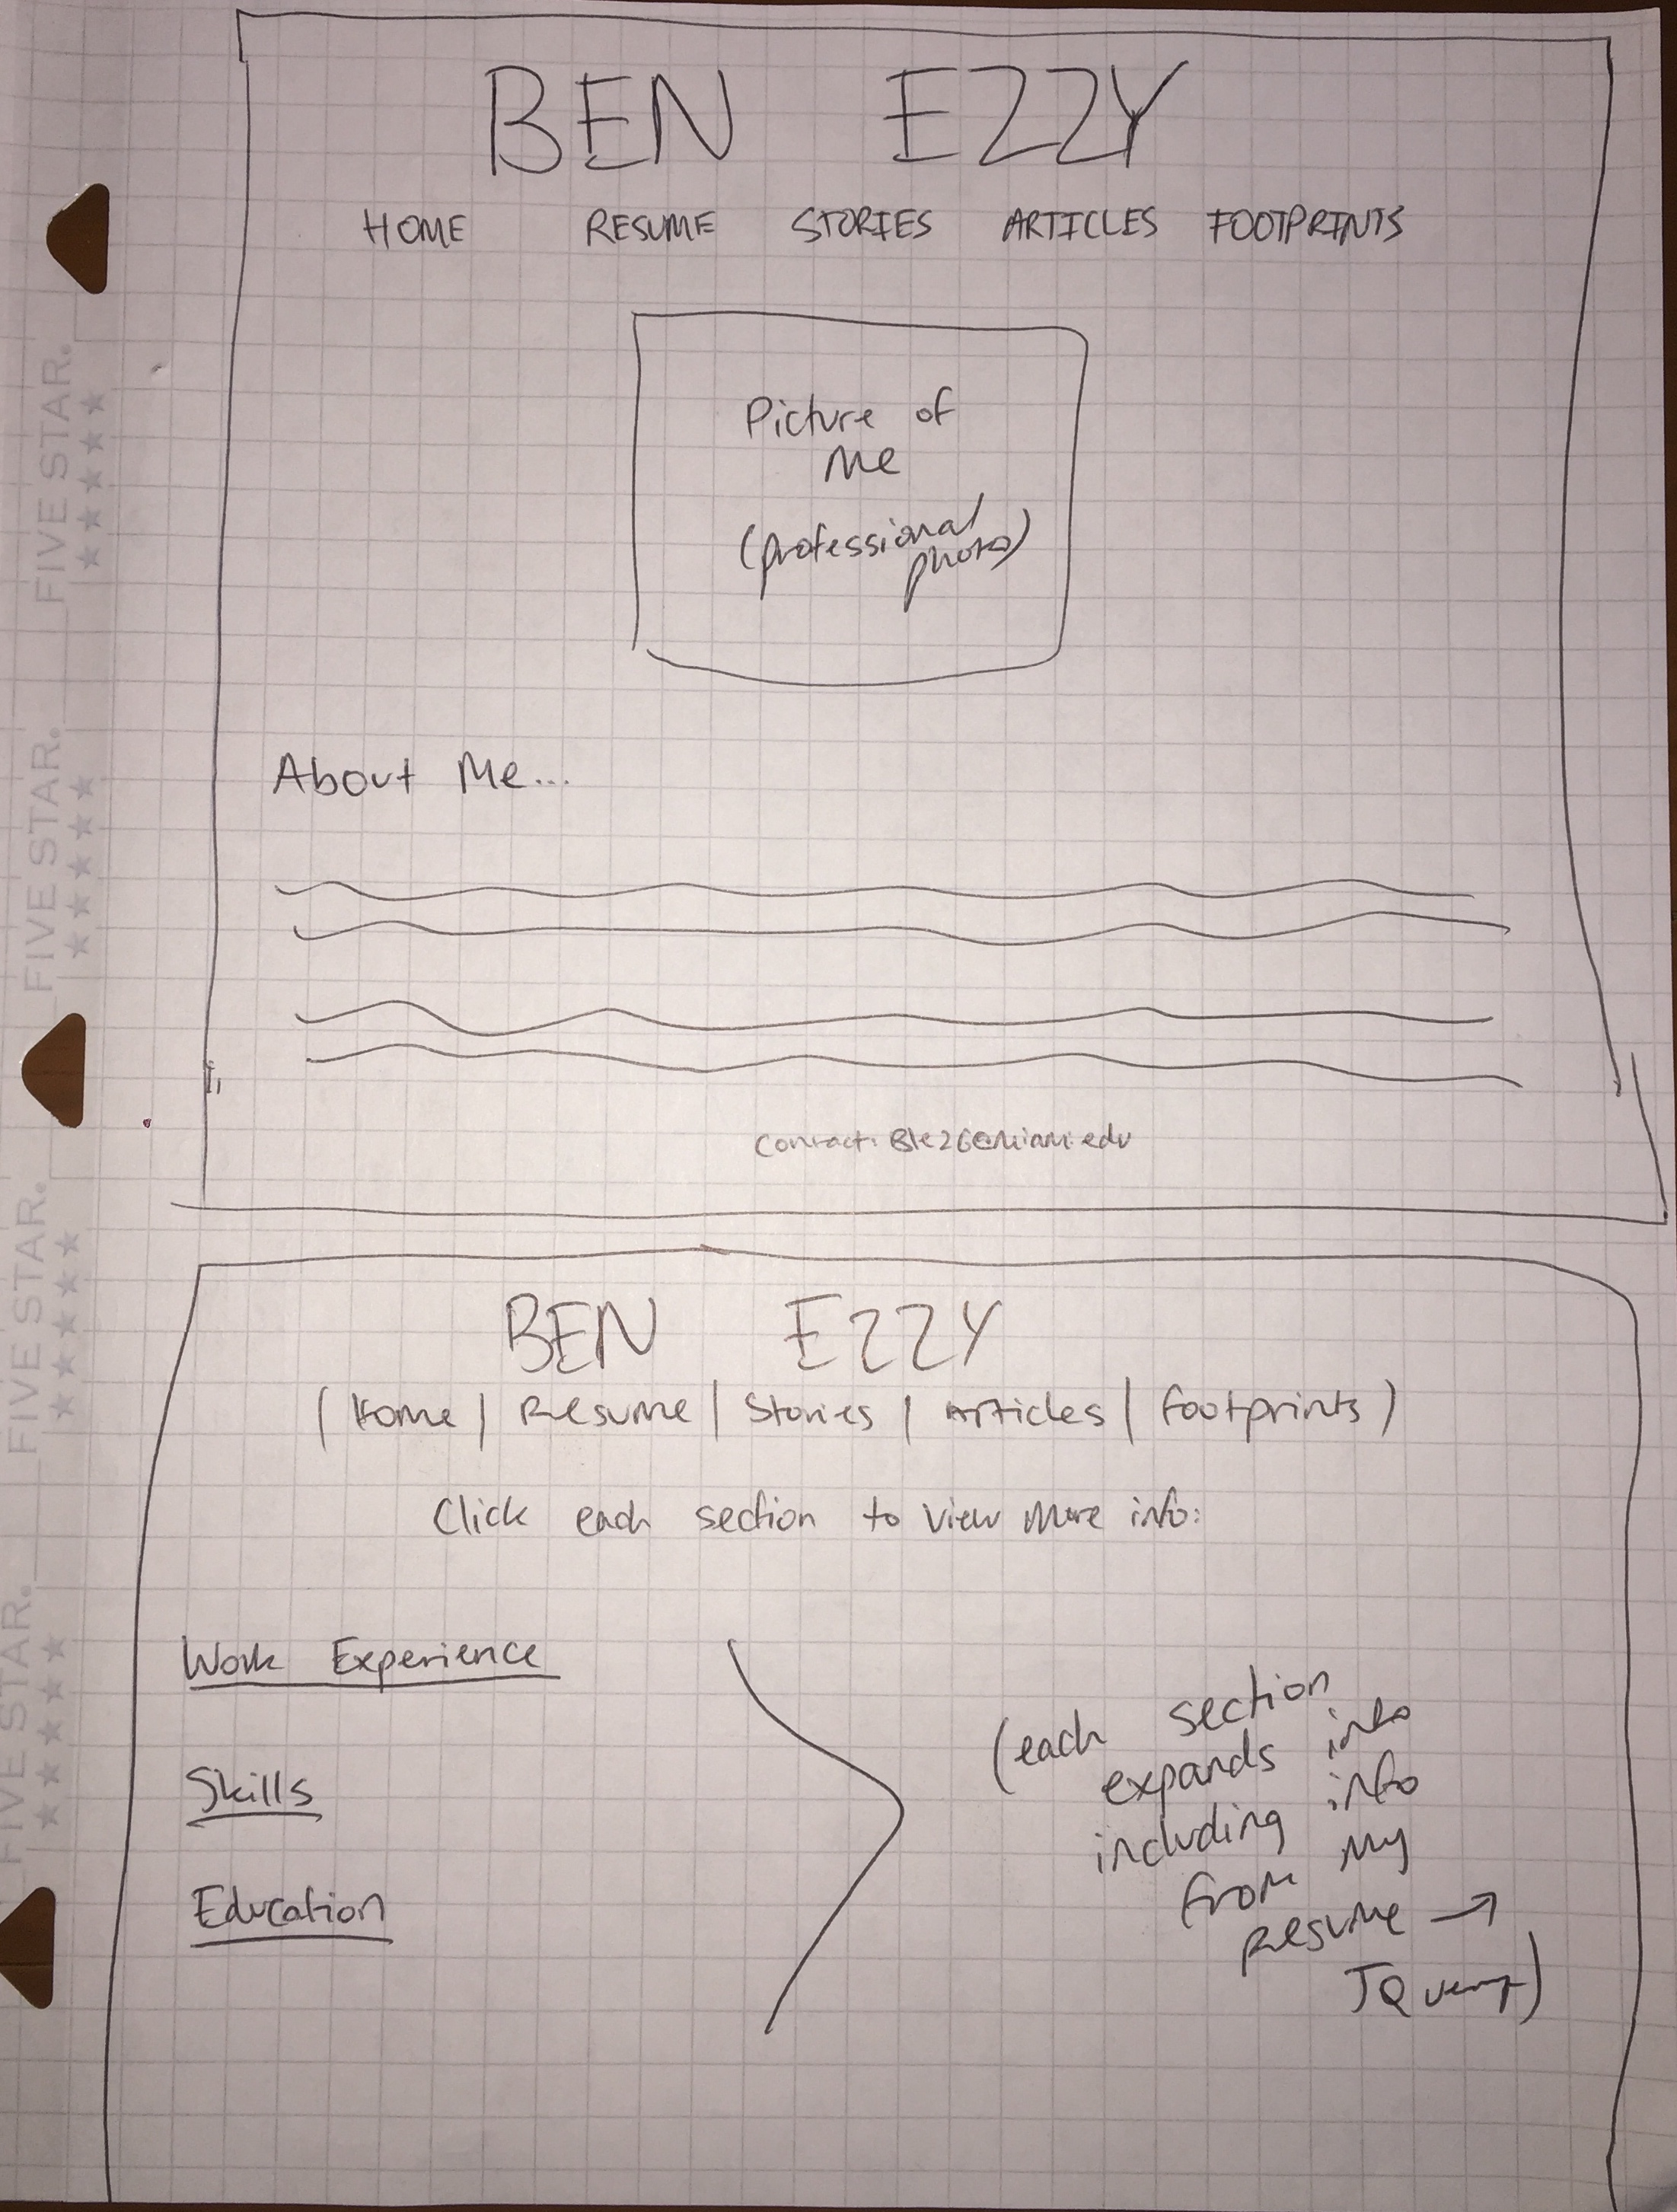 BEN EZZY
HOME RESUME STORIES ARTICLES FOOTPRINTS
Picture of
Me
(professional
photo)
About Me...
Contact: Ble26@miami.edu
BEN EZZY
( Home | Resume | Stories | Articles | Footprints )
Click each section to view more info:
Work Experience
Skills
Education
(each section
expands into
including info
from my
resume →
JQuery)
FIVE STAR.
★★★★★
FIVE STAR.
★★★★★
FIVE STAR.
★★★★★
FIVE STAR.
★★★★★